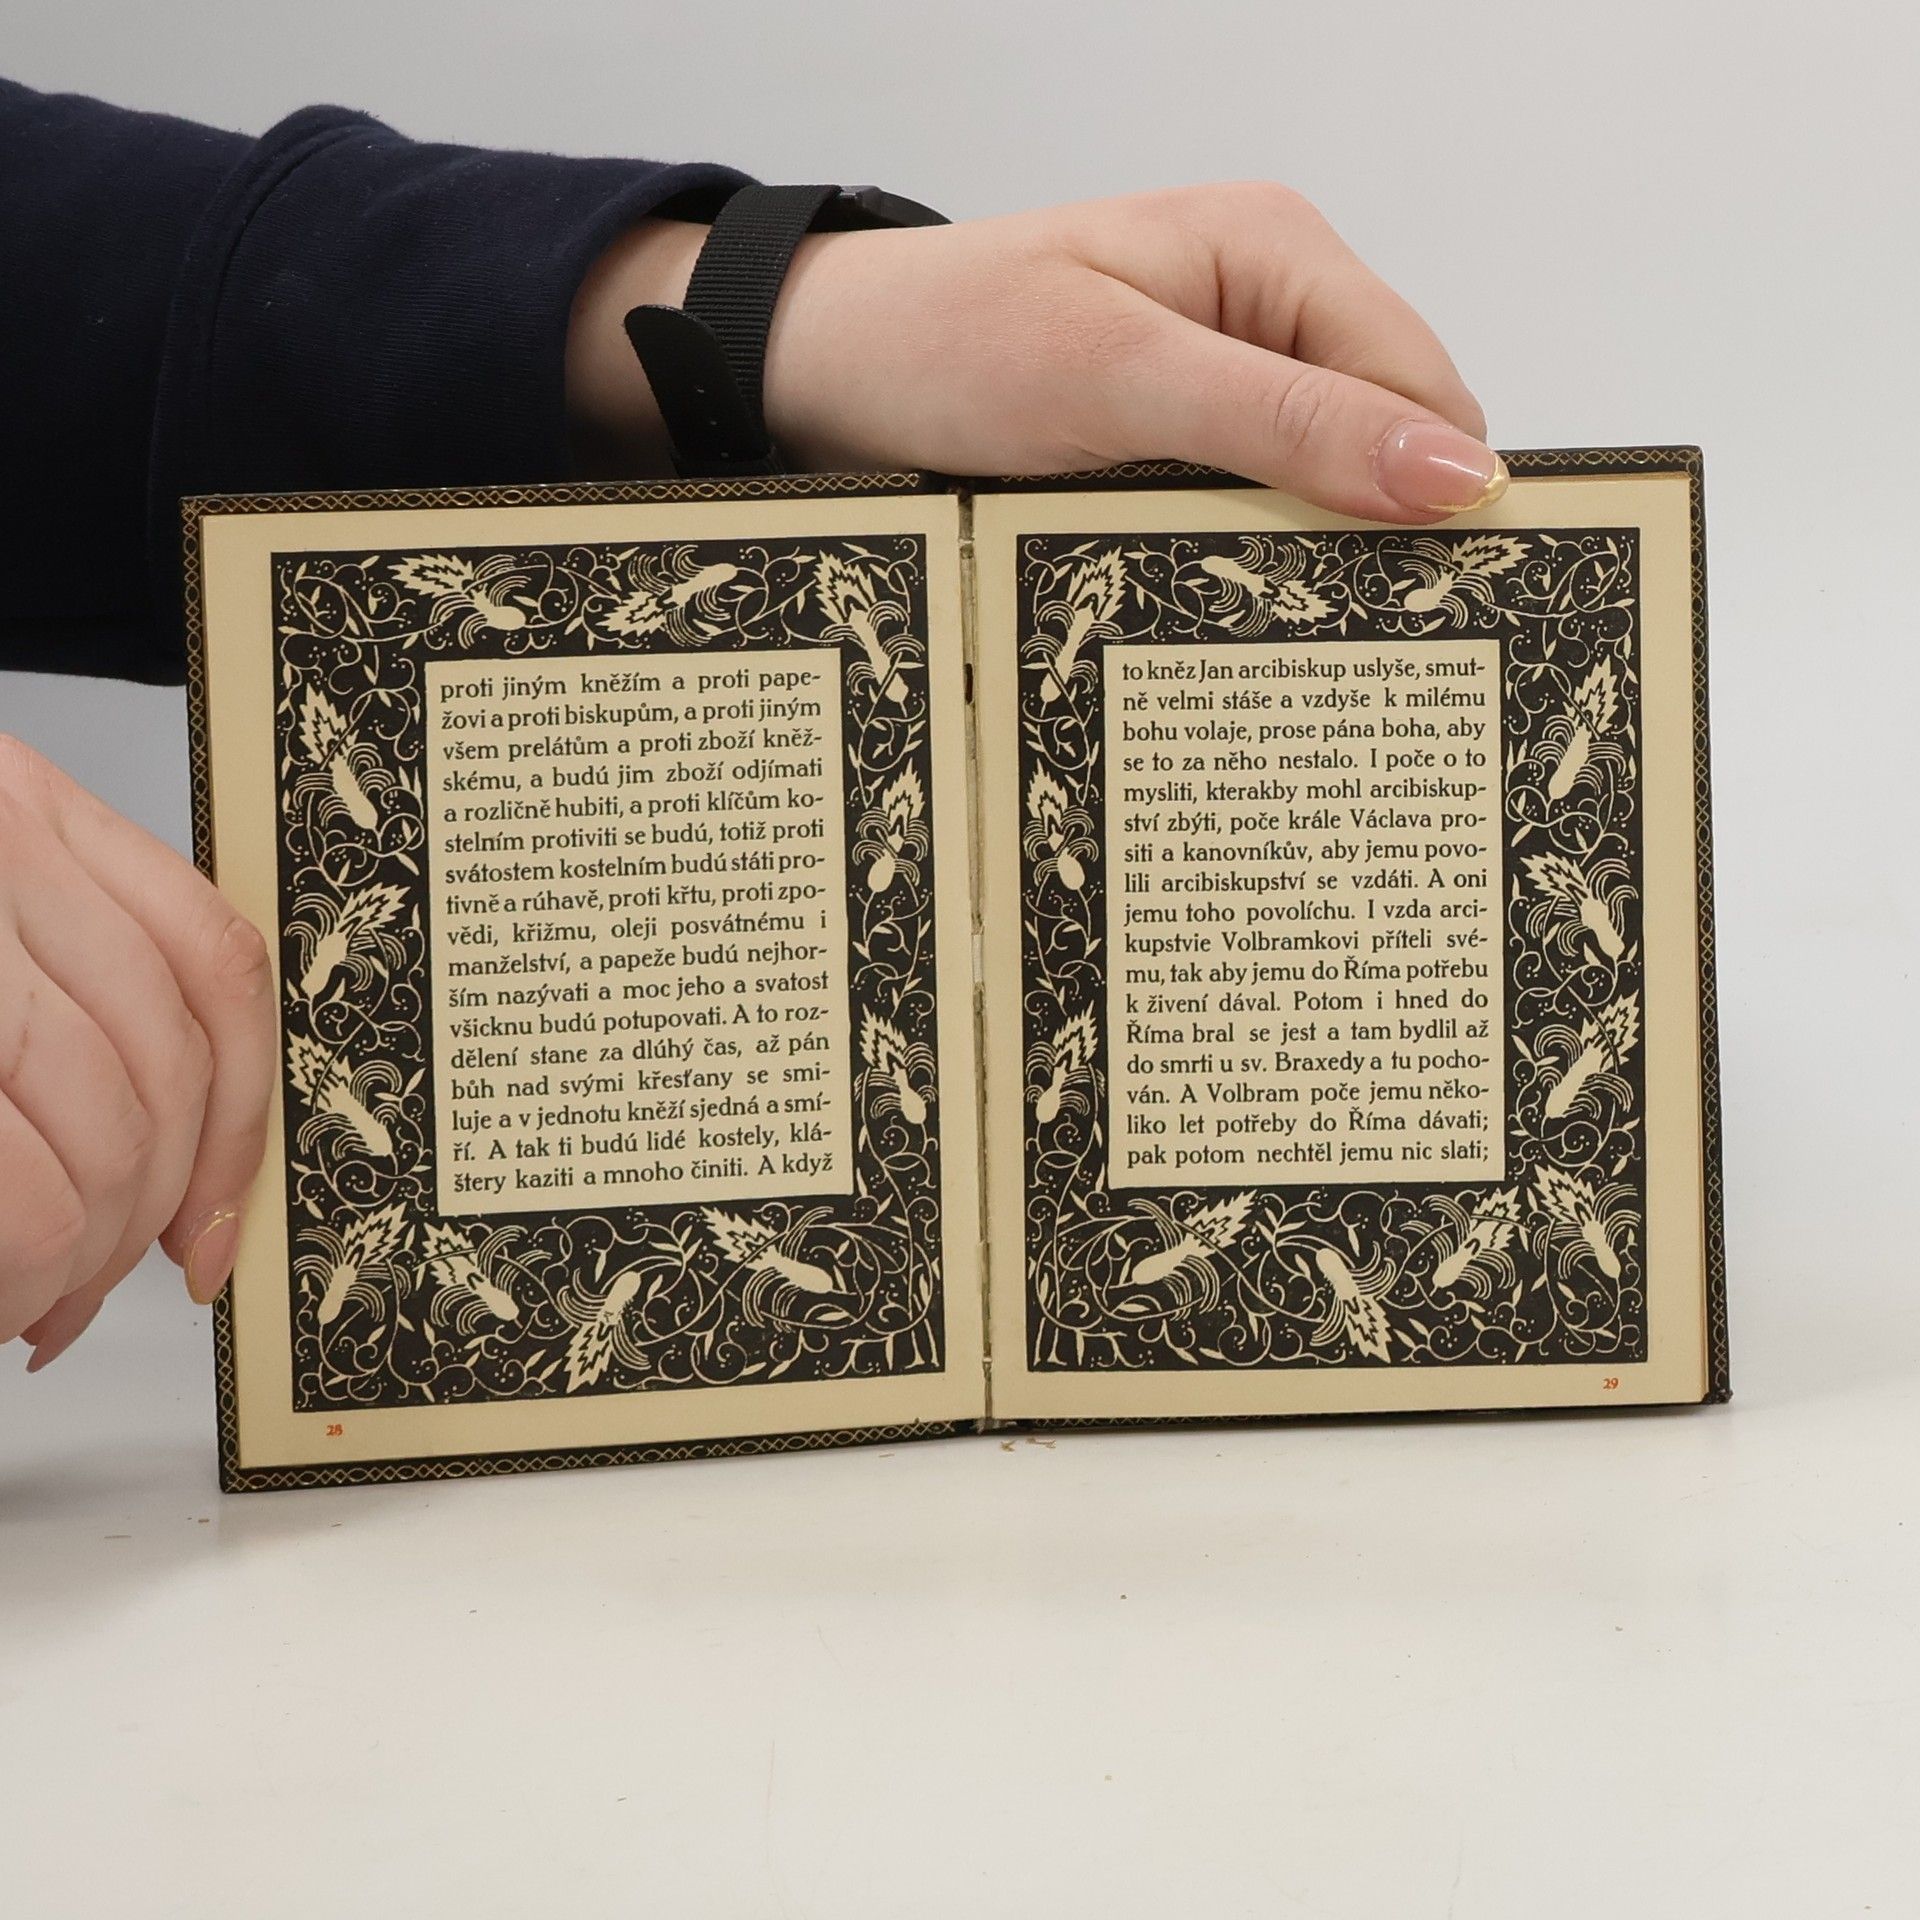 proti jiným kněžím a proti pape-
žovi a proti biskupům, a proti jiným
všem prelátům a proti zboží kněž-
skému, a budú jim zboží odjímati
a rozličně hubiti, a proti klíčům ko-
stelním protiviti se budú, totiž proti
svátostem kostelním budú státi pro-
tivně a rúhavě, proti křtu, proti zpo-
vědi, křižmu, oleji posvátnému i
manželství, a papeže budú nejhor-
ším nazývati a moc jeho a svatost
všicknu budú potupovati. A to roz-
dělení stane za dlúhý čas, až pán
bůh nad svými křesťany se smi-
luje a v jednotu kněží sjedná a smí-
ří. A tak ti budú lidé kostely, klá-
štery kaziti a mnoho činiti. A když
28
to kněz Jan arcibiskup uslyše, smut-
ně velmi stáše a vzdyše k milému
bohu volaje, prose pána boha, aby
se to za něho nestalo. I poče o to
mysliti, kterakby mohl arcibiskup-
ství zbýti, poče krále Václava pro-
siti a kanovníkův, aby jemu povo-
lili arcibiskupství se vzdáti. A oni
jemu toho povolíchu. I vzda arci-
kupstvie Volbramkovi příteli své-
mu, tak aby jemu do Říma potřebu
k živení dával. Potom i hned do
Říma bral se jest a tam bydlil až
do smrti u sv. Braxedy a tu pocho-
ván. A Volbram poče jemu něko-
liko let potřeby do Říma dávati;
pak potom nechtěl jemu nic slati;
29